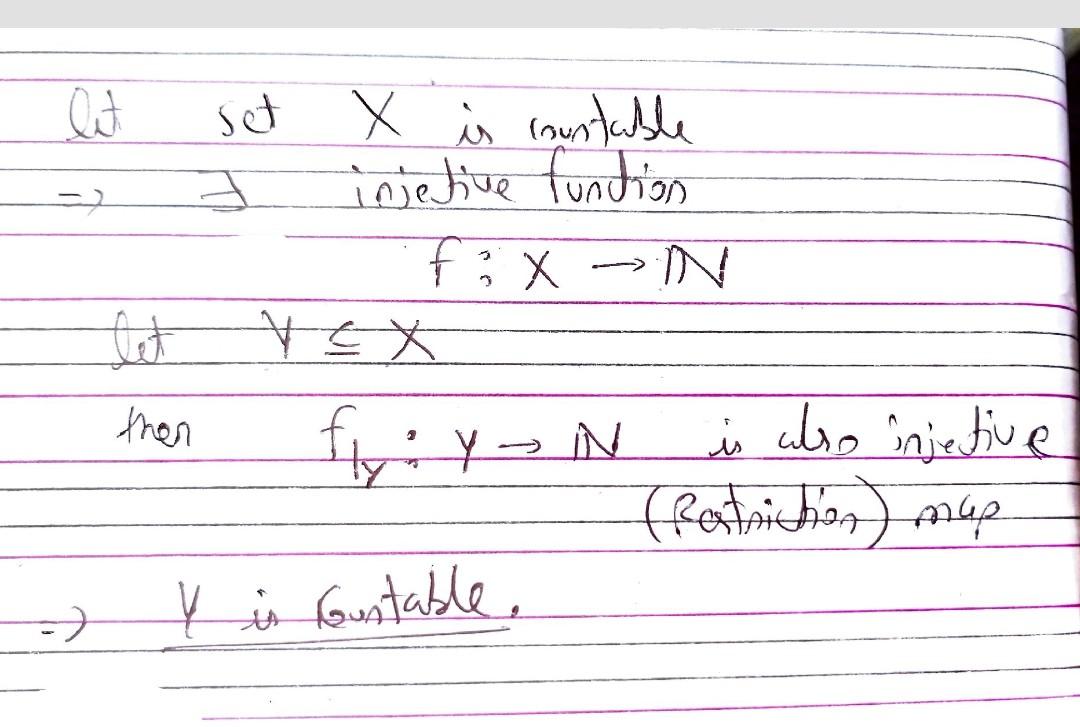 let set X is countable
=> ∃ injective function
f : X → ℕ
let Y ⊆ X
then f|y : Y → ℕ is also injective
(Restriction) map
=> Y is Countable.